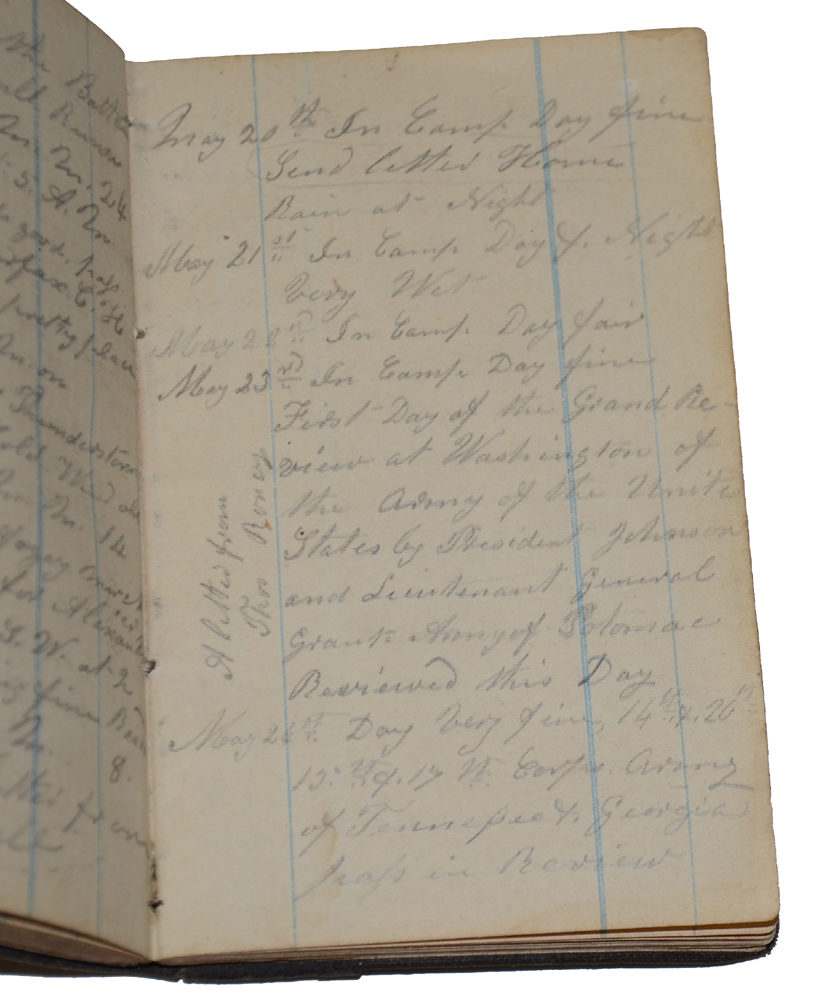 the Battle
ull Runn
In M. 24
U. S. A. M
good
rfax C. H
pretty place
In on
Thunderstorm
old Wind
In M. 14
for Alexan
G. W. at 2
fine
M.
8.
from
May 20th In Camp Day fine
Send letter Home
Rain at Night
May 21st In Camp Day & Night
Very Wet
May 22d In Camp. Day fair
May 23rd In Camp Day fine
First Day of the Grand Re-
view at Washington of
the Army of the Unite
States by President Johnson
and Lieutenant General
Grant Army of Potomac
Reviewed this Day
A letter from
Thos Roney
May 24th Day Very fine, 14th & 20th
15th & 17th Corps. Army
of Tennessee & Georgia
pass in Review